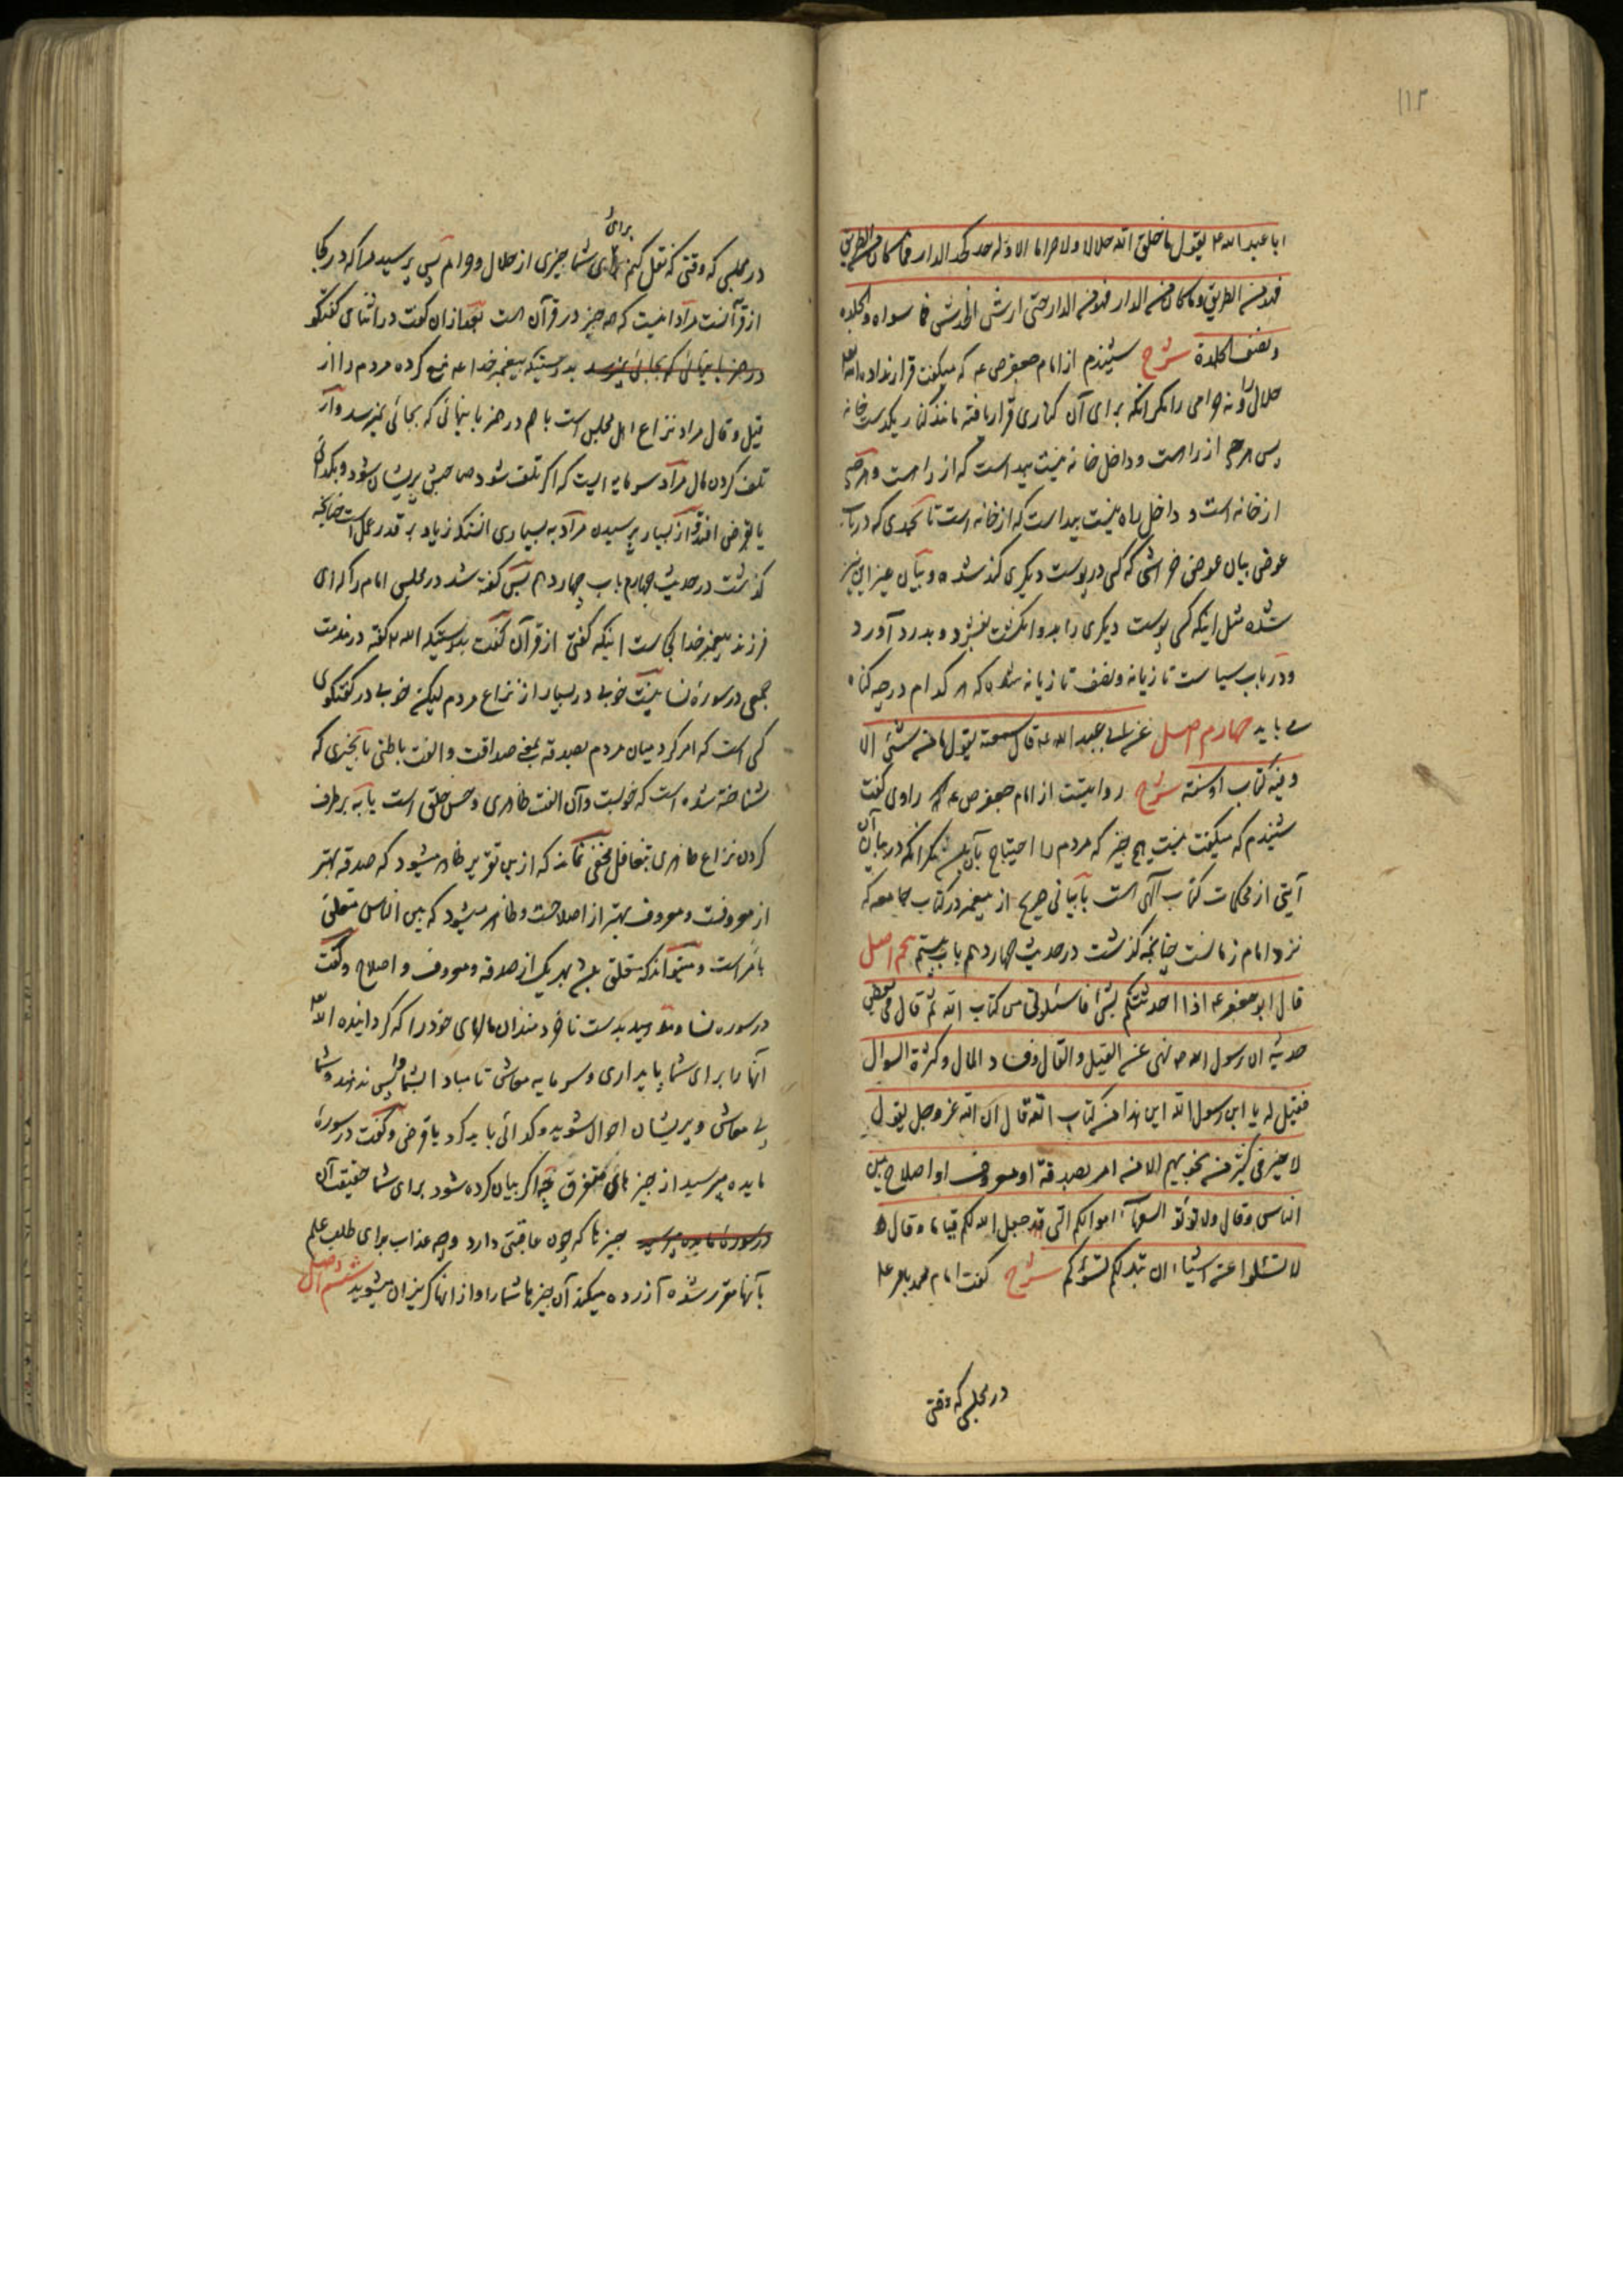 ۱۱۳
ابا عبد الله ع يقول ما خلق الله حلالا ولا حراما الا وله حد كحد الدار فما كان من الطريق
فهو من الطريق وما كان من الدار فهو من الدار حتى ارش الخدش فما سواه والجلدة
ونصف الجلدة شرح شنیدم از امام جعفر ص ع که میگفت قرار نداده الله
حلالی را و نه حرامی را مگر آنکه برای آن کناری قرار یافته مانند کنار یکدست خانه
پس هرچه از راهست و داخل خانه نیست پیداست که از راهست و هرچه
از خانه است و داخل راه نیست پیداست که از خانه است تا بحدی که در باب
عوض بیان عوض خراشی که کسی در پوست دیگری کند شده و بیان غیر این نیز
شده مثل اینکه کسی پوست دیگری را بدو انگشت بفشرد و بدرد آورد
و در باب سیاست تازیانه و نصف تازیانه شده که هر کدام در چه گناه
مے باید چهارم اصل عن ابی عبد الله ع قال سمعته يقول ما من شیء الا
وفيه كتاب او سنة شرح روایتست از امام جعفر ص ع راوی گفت
شنیدم که میگفت نیست هیچ چیز که مردم را احتیاج بآن باشد مگر آنکه در بیان آن
آیتی از محکمات کتاب الهی است یا بیانی صریح از پیغمبر در کتاب جامعه که
نزد امام زمانست چنانچه گذشت در حدیث چهاردهم باب بیستم پنجم اصل
قال ابو جعفر ع اذا احدثتكم بشئ فاسئلونی من كتاب الله ثم قال فی بعض
حديثه ان رسول الله ص نهى عن القيل والقال وفساد المال وكثرة السوال
فقيل له يا ابن رسول الله اين هذا من كتاب الله قال ان الله عز وجل يقول
لا خير فی كثير من نجويهم الا من امر بصدقة او معروف او اصلاح بين
الناس وقال ولا تؤتو السفهآء اموالكم التی قد جعل الله لكم قياما وقال
لا تسئلوا عن اشياء ان تبد لكم تسؤكم شرح گفت امام محمد باقر ع
در مجلسی که وقتی
در مجلسی که وقتی که نقل کنم برای شما چیزی از حلال و حرام پس پرسید مرا که در کجا
از قرآنست مراد اینست که همه چیز در قرآن هست بعد ازان گفت در اثنای گفتگو
بدرستیکه پیغمبر خدا ع منع کرده مردم را از
قیل و قال مراد نزاع اهل مجلس است با هم در چیز پایانی که بجائی نمیرسد و از
تلف کردن مال مراد سرمایه ایست که اگر تلف شود صاحبش پریشان شود و بگدائی
یا بقرض افتد و از بسیار پرسیدن مراد به بسیاری آنستکه زیاد بر قدر عمل است چنانچه
گذشت در حدیث چهارم باب چهاردهم پس گفته شد در مجلس امام را که ای
فرزند پیغمبر خدا کجاست اینکه گفتی از قرآن گفت بدرستیکه الله گفته در مذمت
جمعی در سورۀ نسا نیست خوبی در بسیار از نزاع مردم لیکن خوبی در گفتگوی
کسی است که امر کرد میان مردم بصدقه یعنی صداقت و الفت باطنی یا بچیزی که
شناخته شده است که خوبست و آن الفت ظاهری و حسن خلق است یا به برطرف
کردن نزاع ظاهری بتغافل مخفی نماند که ازین تقریر ظاهر میشود که صدقه بهتر
از معروفست و معروف بهتر از اصلاحست و ظاهر میشود که بین الناس متعلق
بامر است و میتواند که متعلق باشد بهر یک از صدقه و معروف و اصلاح و گفت
در سوره نسا و مدهید بدست ناخردمندان مالهای خود را که گردانیده الله
آنها را برای شما پایداری و سرمایه معاش تا مبادا بشما واپس ندهند و شما
بی معاش و پریشان احوال شوید و گدائی باید کرد یا قرض و گفت در سورۀ
مایده مپرسید از چیزهای متفرق که اگر بیان کرده شود برای شما حقیقت آن
چیزها که چون عاقبتی دارد و چه عذاب برای طلب علم
بآنها مقرر شده آزرده میکند آن چیزها شما را و از آنها گریزان میشوید ششم اصل